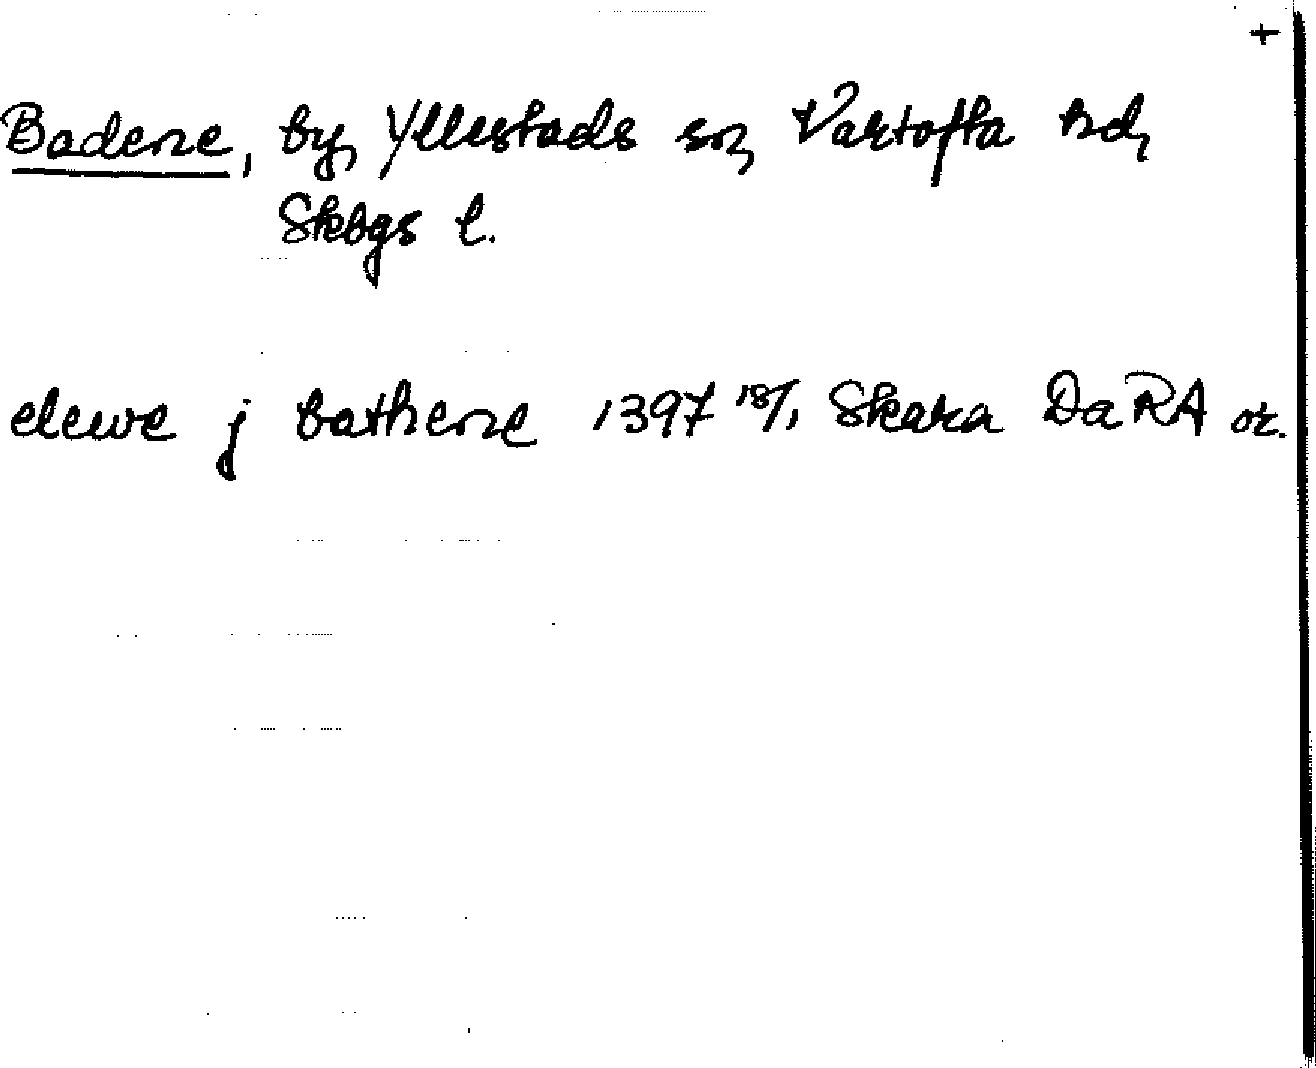 +
Badene, by, Yllestads sn, Vartofta hd,
Skbgs l.
elewe j bathene 1397 18/1 Skara DaRA or.